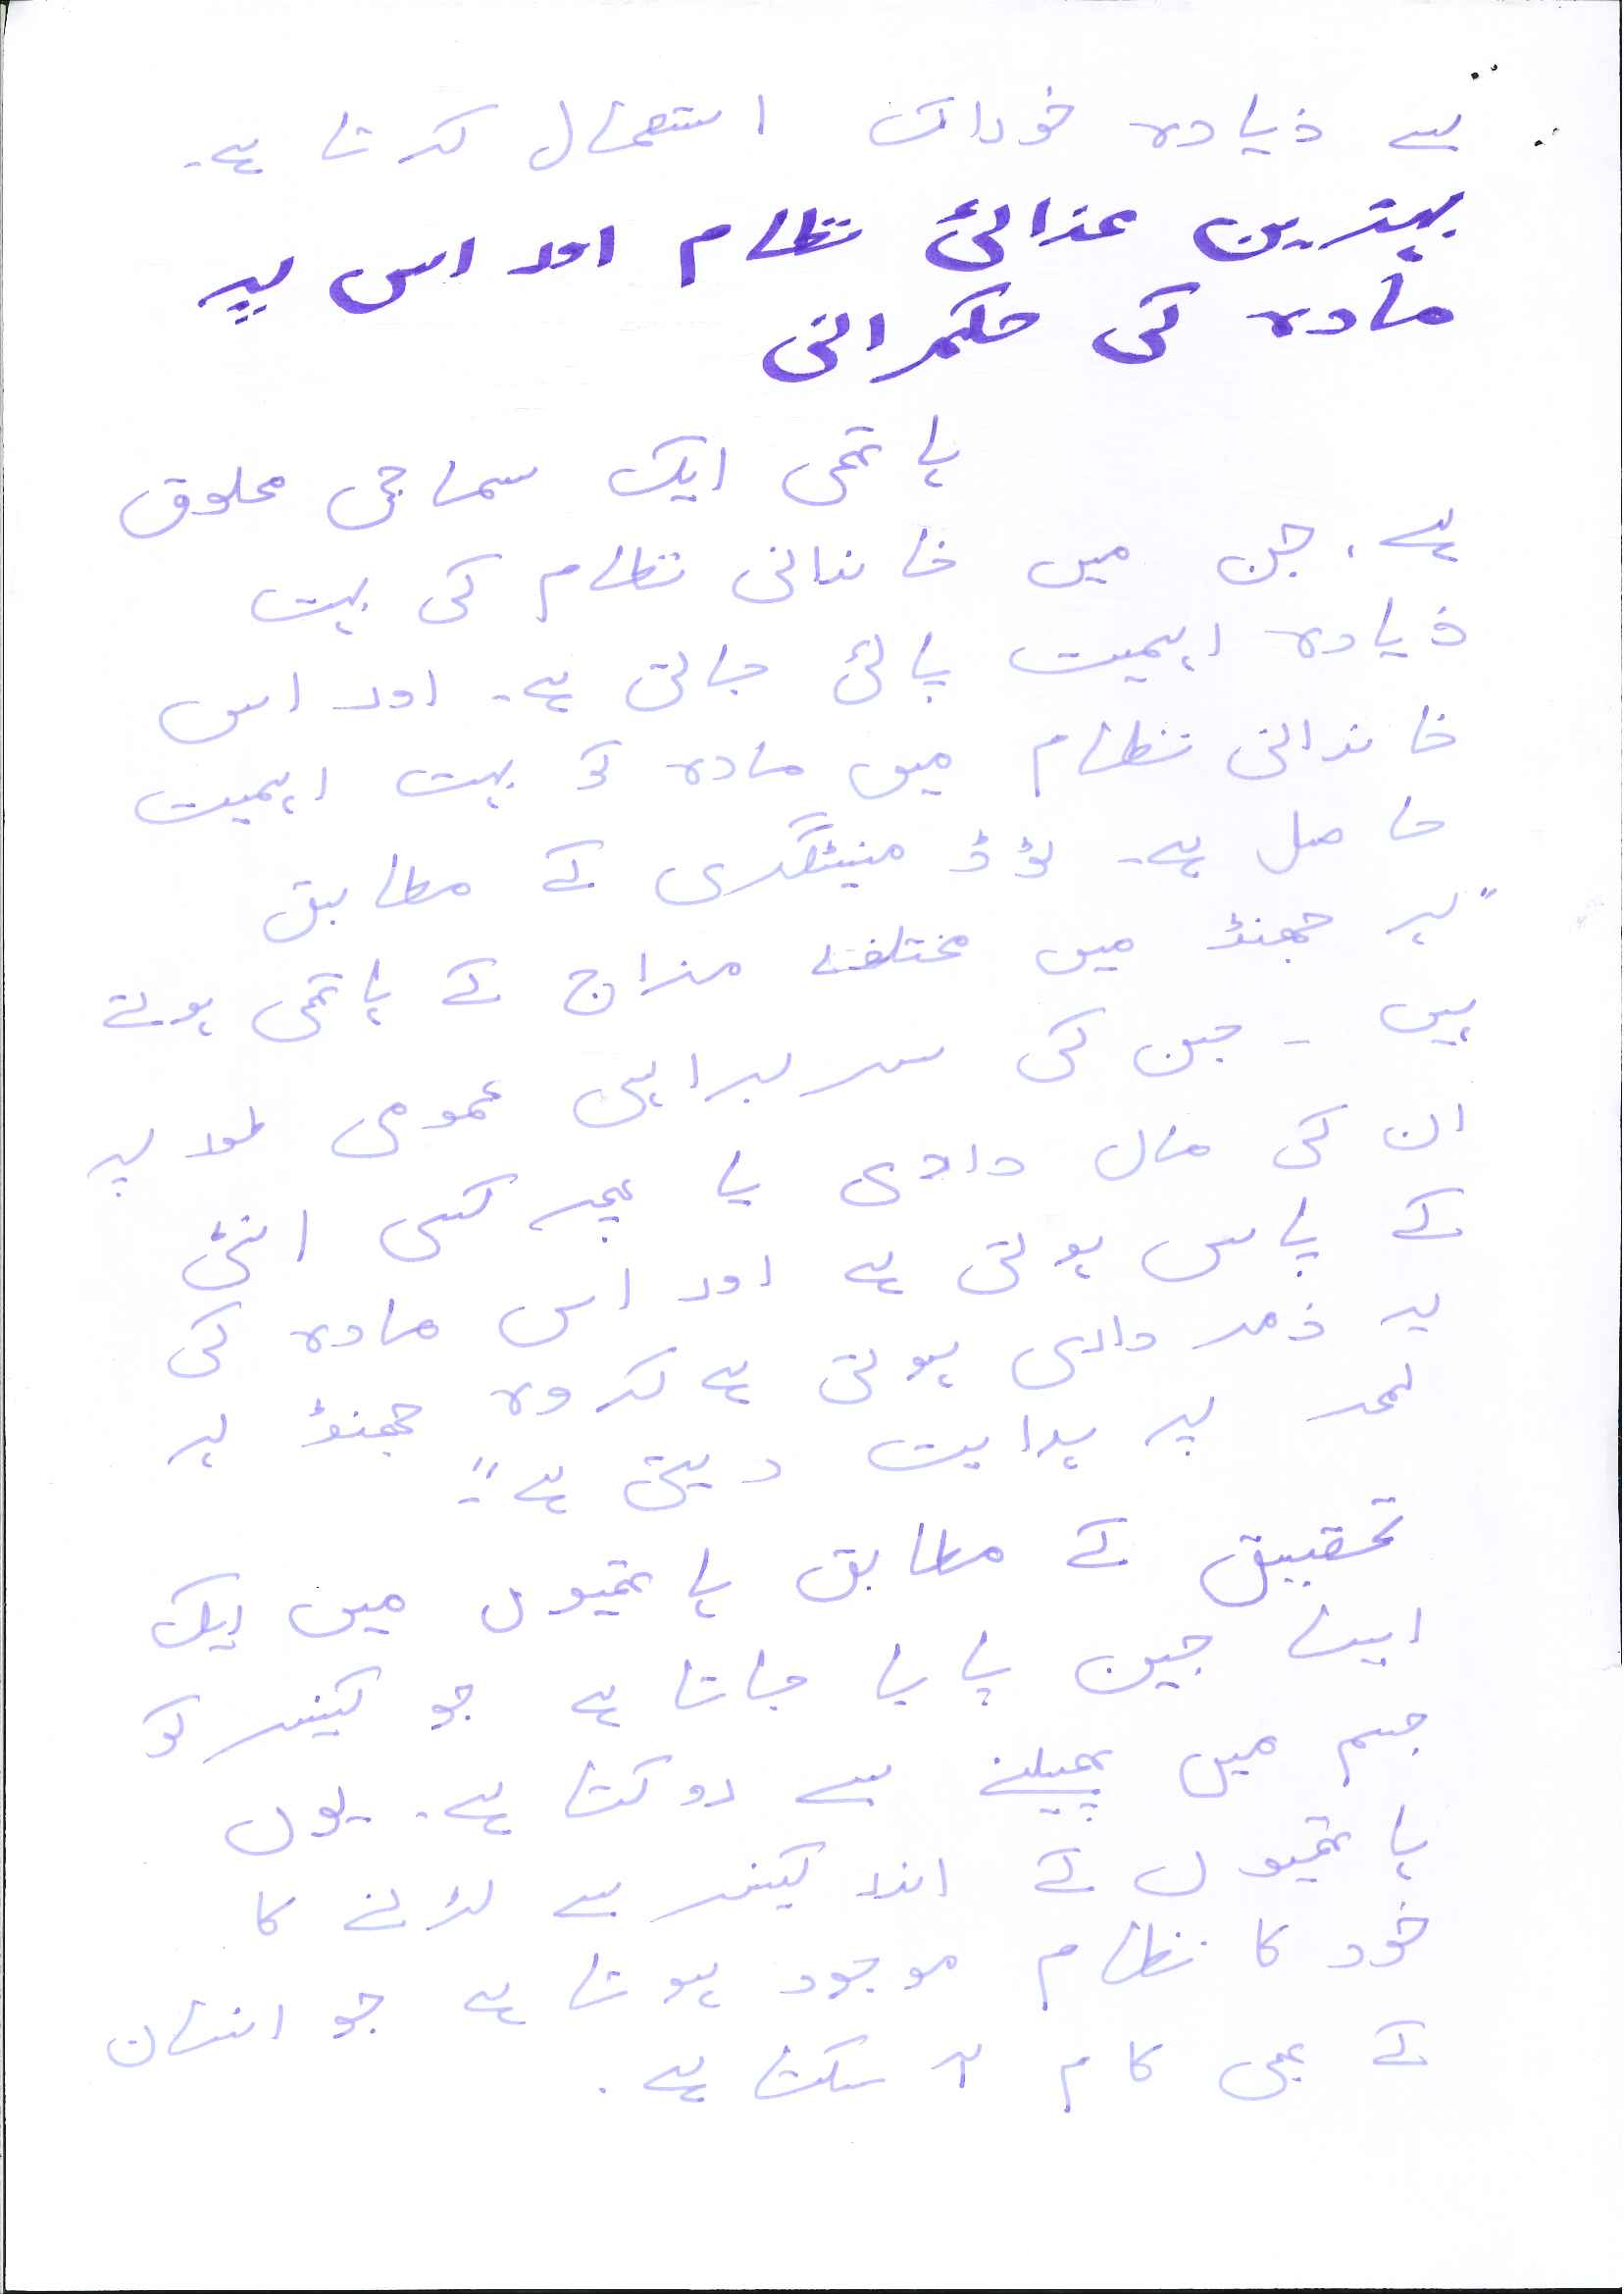 سے ذیادہ خوراک استعمال کرتا ہے۔
بہترین غذائی نظام اور اس پر
مادہ کی حکمرانی
ہاتھی ایک سماجی مخلوق
ہے، جن میں خاندانی نظام کی بہت
ذیادہ اہمیت پائی جاتی ہے۔ اور اس
خاندانی نظام میں مادہ کو بہت اہمیت
حاصل ہے۔ لؤڈ منیٹگری کے مطابق
"ہر جھنڈ میں مختلف مزاج کے ہاتھی ہوتے
ہیں ۔ جن کی سربراہی عمومی طور پر
ان کی ماں دادی یا پھر کسی انٹی
کے پاس ہوتی ہے اور اس مادہ کی
یہ ذمہ داری ہوتی ہے کہ وہ جھنڈ ہر
لمحہ پر ہدایت دیتی ہے"۔
تحقیق کے مطابق ہاتھیوں میں ایک
ایسا جین پایا جاتا ہے جو کینسر کو
جسم میں پھیلنے سے روکتا ہے۔ یوں
ہاتھیوں کے اندر کینسر سے لڑنے کا
خود کا نظام موجود ہوتا ہے جو انسان
کے بھی کام آ سکتا ہے۔